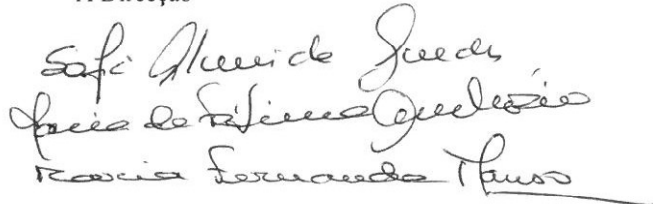 A Direcção
Sofi Almeida Guedes
Maria de Fátima
Maria Fernanda Manso